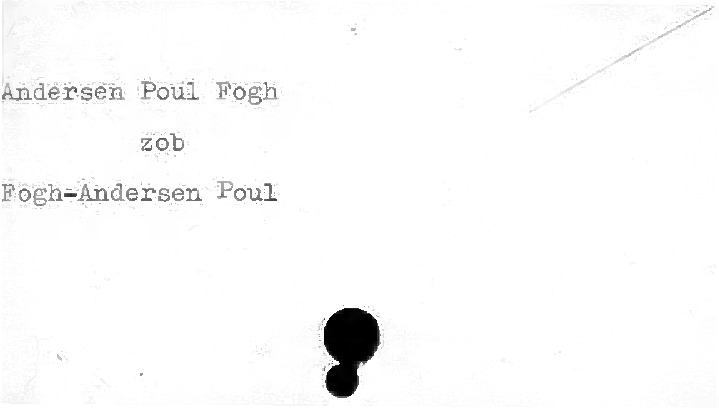 Andersen Poul Fogh
zob
Fogh-Andersen Poul